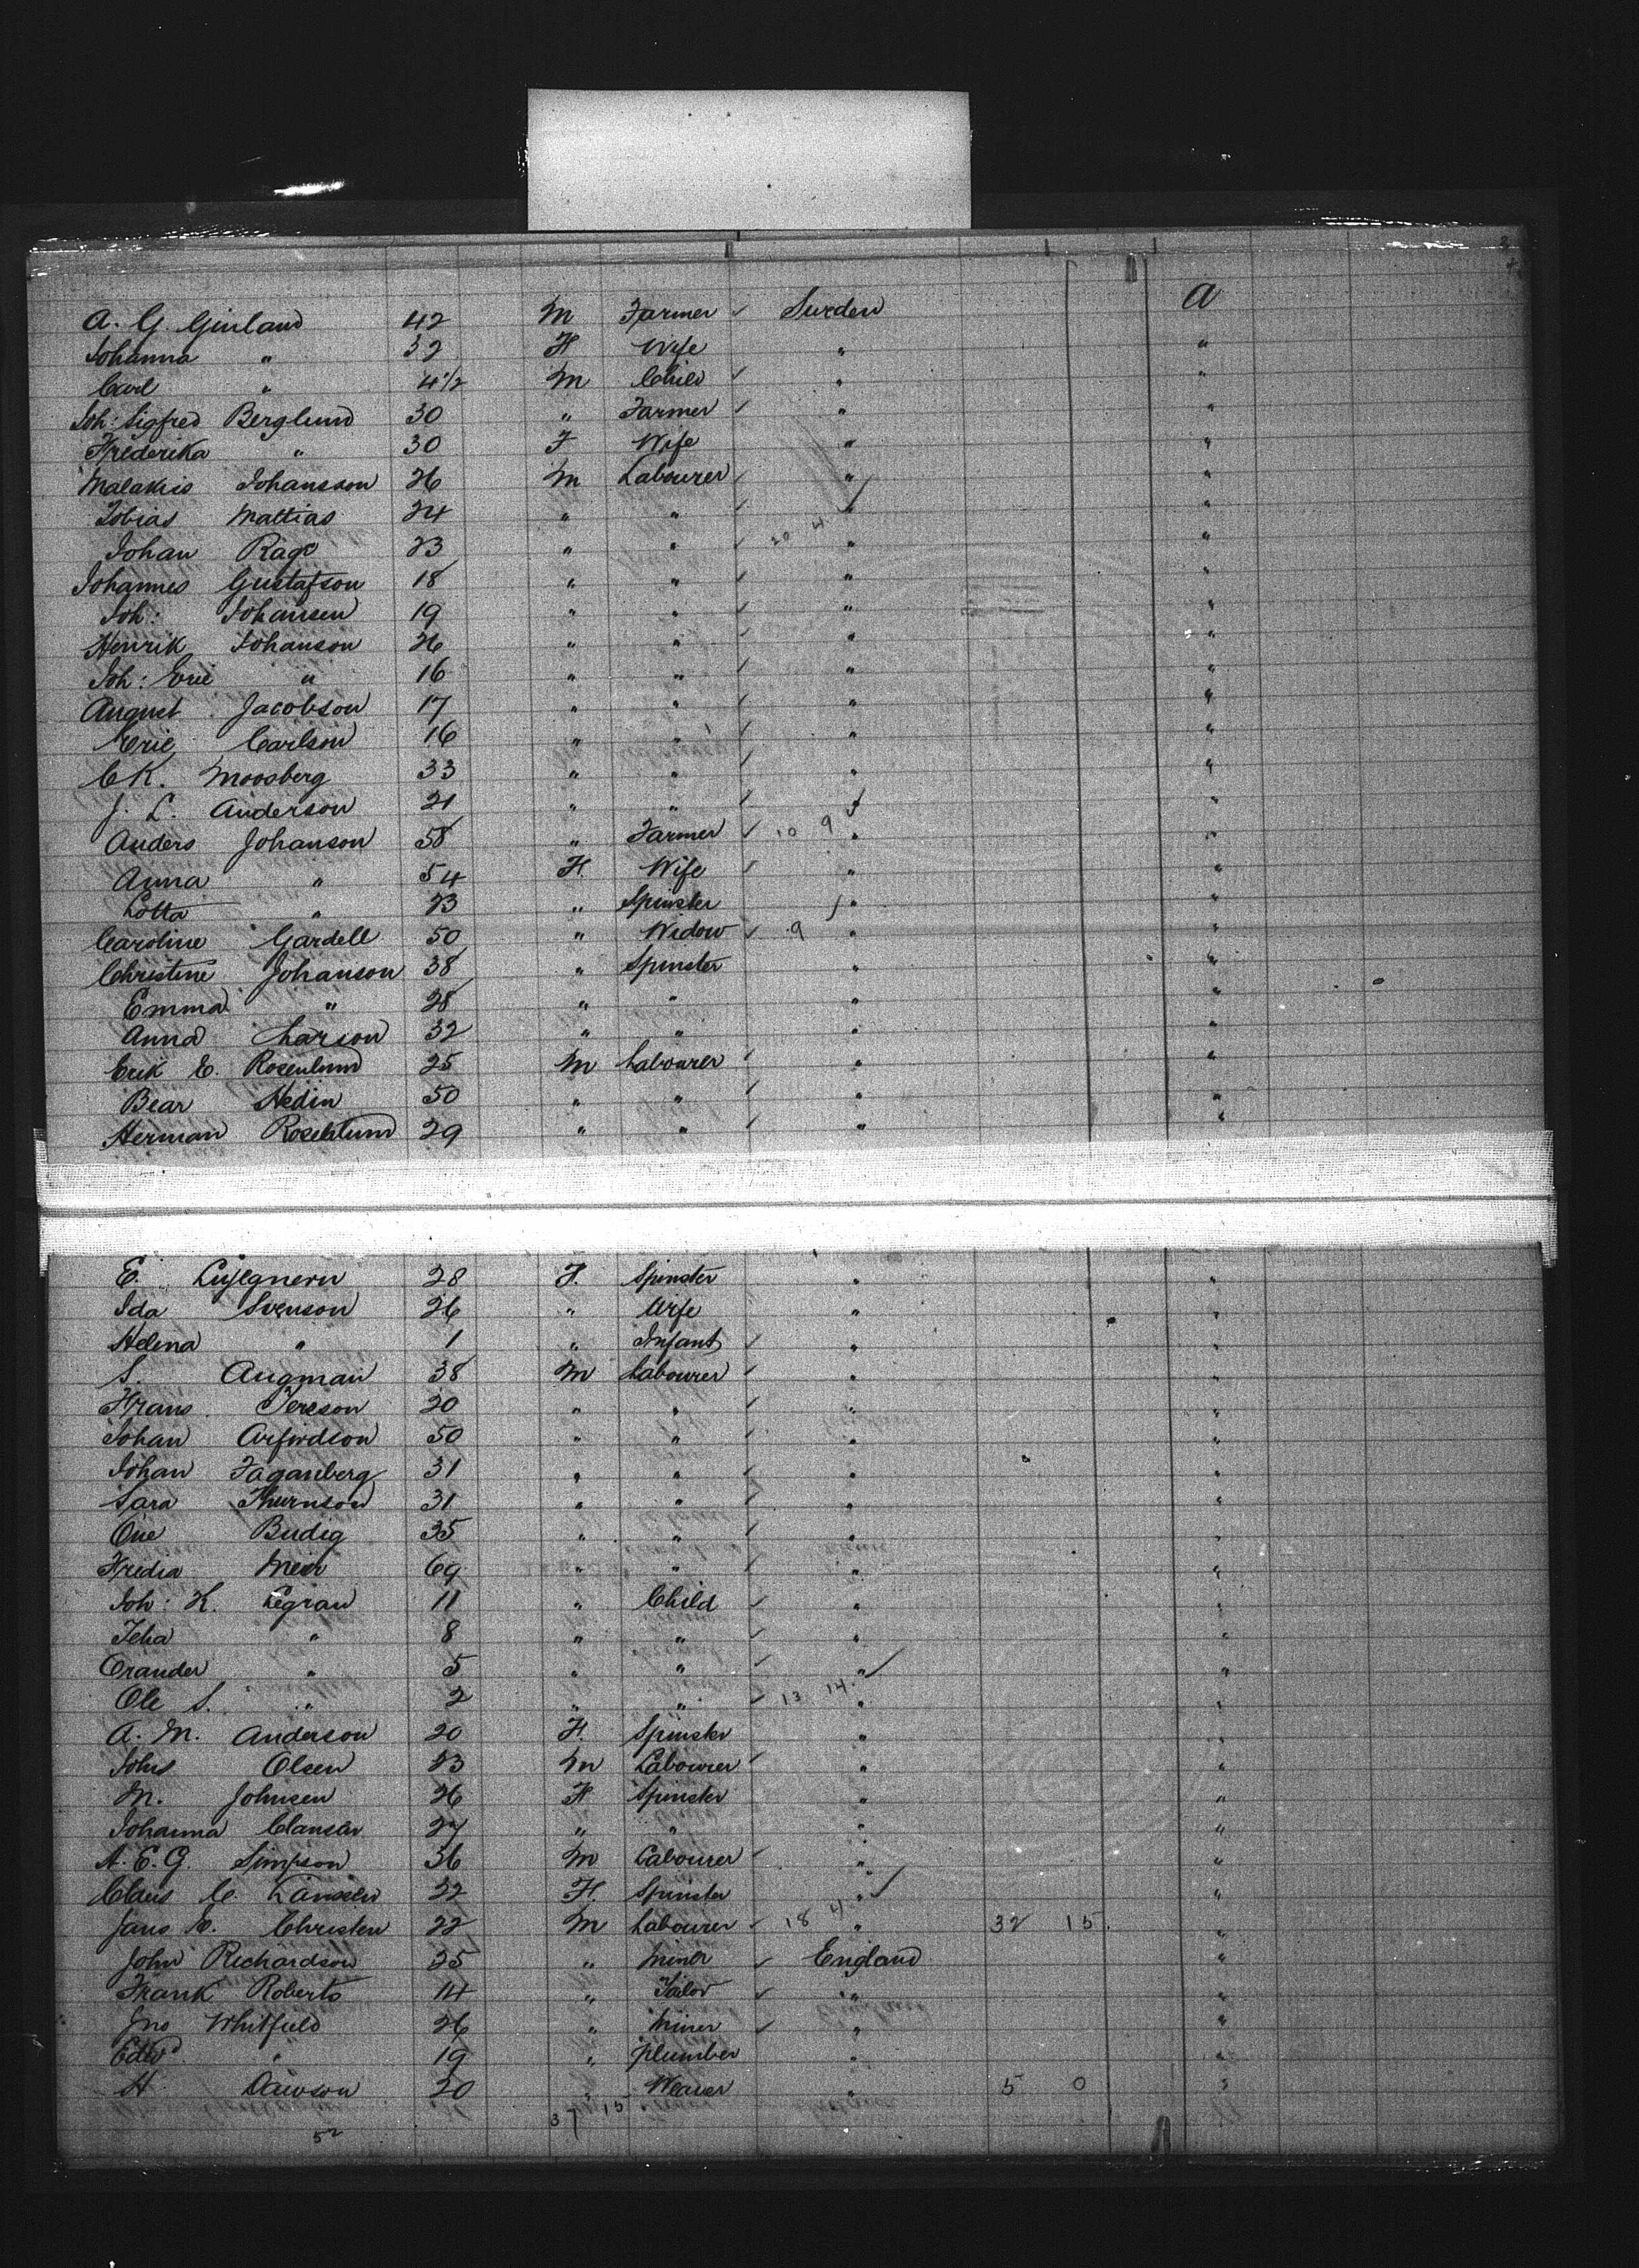 a
A. G. Ginland 42 M Farmer ✓ Sweden
Johanna " 32 F Wife " "
Carl " 4 1/2 M Child ✓ " "
Joh: Sigfred Berglund 30 " Farmer ✓ " "
Frederika " 30 F Wife " "
Malakio Johansson 26 M Labourer ✓ " "
Tobias Mattias 24 " " ✓ " "
Johan Rage 23 " " ✓ 20 4 " "
Johannes Gustafson 18 " " ✓ " "
Joh: Johansen 19 " " ✓ " "
Henrik Johanson 26 " " ✓ " "
Joh: Eric " 16 " " ✓ " "
August Jacobson 17 " " ✓ " "
Eric Carlson 16 " " ✓ " "
C K. Moosberg 33 " " ✓ " "
J. L. Anderson 21 " " ✓ " "
Anders Johanson 58 " Farmer ✓ 10 9 " "
Anna " 54 F. Wife ✓ " "
Lotta " 23 " Spinster " "
Caroline Gardell 50 " Widow ✓ 9 " "
Christine Johanson 38 " Spinster " "
Emma " 28 " " " "
Anna Larson 32 " " " "
Erik E. Rosenlund 25 M Labourer ✓ " "
Bear Hedin 50 " " ✓ " "
Herman Rosenlund 29 " " ✓ " "
E. 28 F. Spinster " "
Ida Svenson 26 " Wife " "
Helena " 1 " Infant ✓ " "
S. Augman 38 M Labourer ✓ " "
Frans Pereson 20 " " ✓ " "
Johan 50 " " ✓ " "
Johan Faganberg 31 " " ✓ " "
Sara Thurnson 31 " " ✓ " "
Budig 35 " " ✓ " "
Fredia Meir 69 " " ✓ " "
Joh: K. Legran 11 " Child ✓ " "
" 8 " " ✓ " "
" 5 " " ✓ " "
Ole S. " 2 " " ✓ 13 14 " "
A. M. Anderson 20 F. Spinster " "
Johs Olsen 23 M Labourer ✓ " "
M. Johnsen 26 F Spinster " "
Johanna Clansen 27 " " " "
A. E. G. Simpson 36 M Labourer ✓ " "
Claus C. Lanssen 22 F. Spinster " "
Jans E. Christen 22 M Labourer ✓ 18 4 " 32 15 "
John Richardson 25 " Miner ✓ England "
Frank Roberts 14 " Tailor ✓ " "
Jno Whitfield 26 " Miner ✓ " "
Edwd " 19 " Plumber " "
H. Dawson 20 " Weaver " 5 0 "
52 37 15